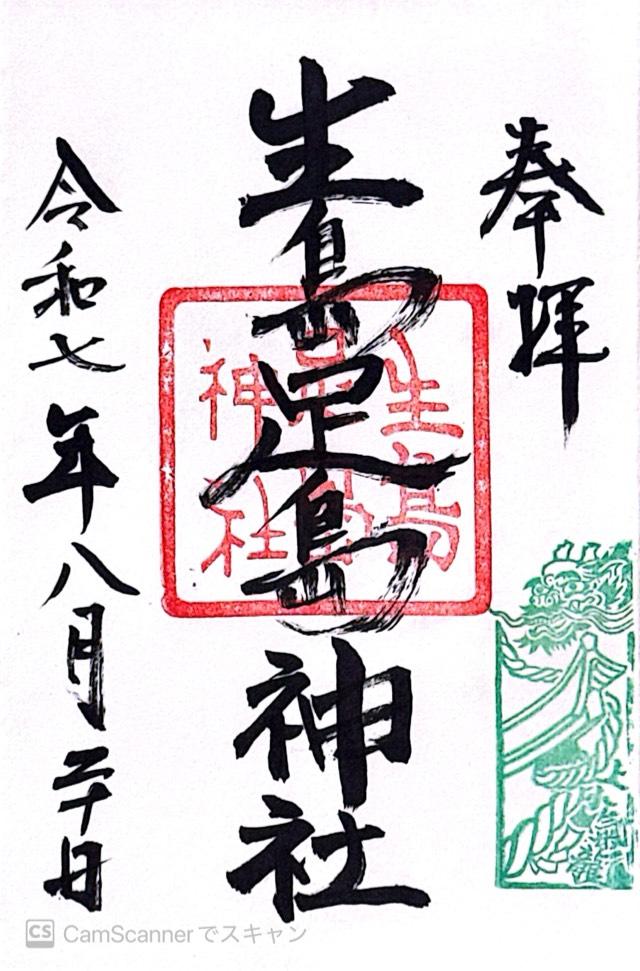 奉拝
生島足島神社
生島
足島
神社
令和七年八月二十日
CS CamScannerでスキャン